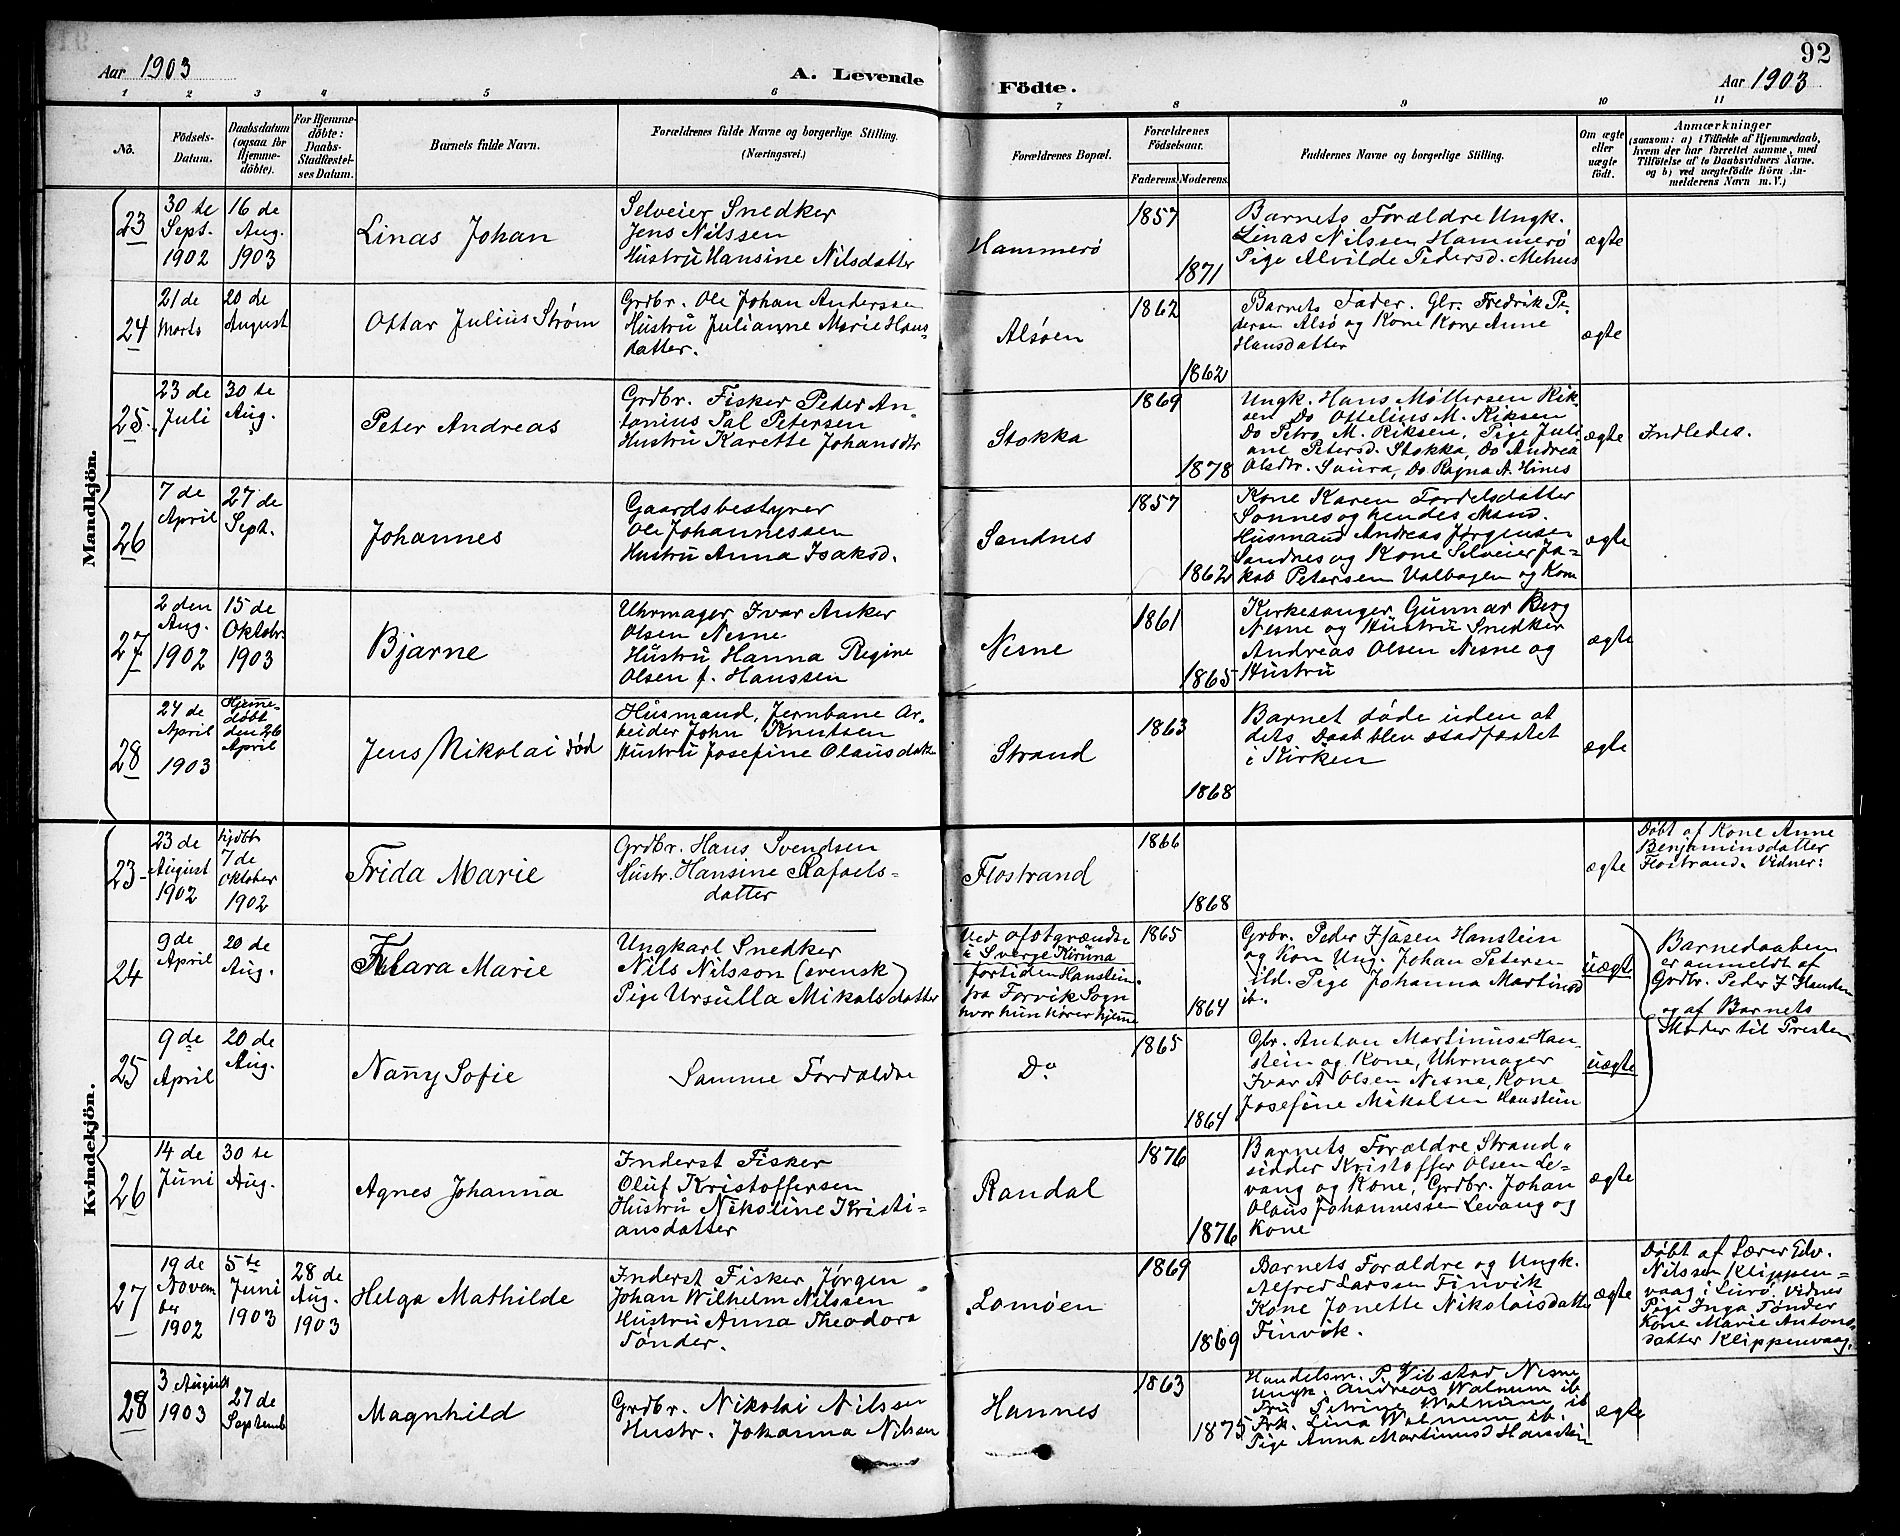 92
Aar 1903
A. Levende
Födte.
Aar 1903
1 2 3 4 5 6 7 8 9 10 11
No.
Födsels-
Datum.
Daabsdatum
(ogsaa for
Hjemme-
döbte).
For Hjemme-
döbte:
Daabs-
Stadfæstel-
ses Datum.
Barnets fulde Navn.
Forældrenes fulde Navne og borgerlige Stilling.
(Næringsvei.)
Forældrenes Bopæl.
Forældrenes
Födselsaar.
Faderens. Moderens.
Faddernes Navne og borgerlige Stilling.
Om ægte
eller
uægte
født.
Anmærkninger
(saasom: a) i Tilfælde af Hjemmedaab,
hvem der har forrettet samme, med
Tilföielse af to Daabsvidners Navne.
og b) ved uægtefödte Börn An-
melderens Navn m. V.)
Mandkjön.
23
30 te
Sept.
1902
16 de
Aug.
1903
Linas Johan
Selveier Snedker
Jens Nilssen
Hustru Hansine Nilsdatter
Hammerö
1857
1871
Barnets Forældre Ungk.
Linas Nilssen Hammerö
Pige Alvilde Pedersd. Mehus
ægte
24
21 de
Marts
20 de
August
Ottar Julius Strøm
Grdbr. Ole Johan Anderssen
Hustru Julianne Marie Hans
datter.
Alsøen
1862
1862
Barnets Fader. Glr. Fredrik Pe-
dersen Alsø og Kone Kone Anne
Hansdatter
ægte
25.
23 de
Juli
30 te
Aug.
Peter Andreas
Grdbr. Fisker Peder An-
tonius Sal Petersen
Hustru Karette Johansdtr
Stokka
1869
1878
Ungk. Hans Møllersen Rik-
sen Do Ottelius M. Riksen
Do Petro M. Riksen, Pige Juli
ane Petersd. Stokka, Do Andrea
Olsdtr. Saura, Do Ragna A. Hines
ægte
Indledes.
26
7 de
April
27 de
Sept.
Johannes
Gaardsbestyrer
Ole Johannessen
Hustru Anna Isaksd.
Sandnes
1857
1862
Kone Karen Fordelsdatter
Sonnes og hendes Mand.
Husmand Andreas Jørgensen
Sandnes og Kone Selveier Ja-
kob Petersen Valbogen og Kone
ægte
27
2 den
Aug.
1902
15 de
Oktobr.
1903
Bjarne
Uhrmager Ivar Anker
Olsen Nesne
Hustru Hanna Regine
Olsen f. Hanssen
Nesne
1861
1865
Kirkesanger Gunnar Berg
Nesne og Hustru Snedker
Andreas Olsen Nesne og
Hustru
ægte
28
24 de
April
1903
Hjemme-
døbt
den 26
April
Jens Nikolai død
Husmand, Jernbane Ar-
beider John Knutsen
Hustru Josefine Olausdatr
Strand
1863
1868
Barnet døde uden at
dets Daab blev stadfæstet
i Kirken
ægte
Kvindekjön.
23
23 de
August
1902
hjdbt
7 de
Oktober
1902
Frida Marie
Grdbr. Hans Svendsen
Hustr. Hansine Rafaels-
datter
Flostrand
1866
1868
ægte
Døbt af Kone Anne
Benjaminsdatter
Flostrand. Vidner:
24
9 de
April
20 de
Aug.
Klara Marie
Ungkarl Snedker
Nils Nilsson (svensk)
Pige Ursulla Mikalsdatter
Ved ofotgrændse
i Sverge Kiruna
fortiden Hanstein
fra Forvik Sogn
hvor hun hører hjemme
1865
1864
Grbr. Peder Hanstein
og Kon Ung. Johan Petersen
ild. Pige Johanna Martinsd
ib.
uægte
Barnedaaben
er anmeldt af
Grdbr. Peder I Hanstein
og af Barnets
Moder til Presten
25
9 de
April
20 de
Aug.
Nanny Sofie
Samme Forældre
Do
1865
1864
Glr. Anton Martinus Han-
stein og Kone, Uhrmager
Ivar A Olsen Nesne, Kone
Josefine Mikalsen Hanstein
uægte
26
14 de
Juni
30 te
Aug.
Agnes Johanna
Inderst Fisker
Oluf Kristoffersen
Hustru Nikoline Kristi-
ansdatter
Randal
1876
1876
Barnets Forældre Strand-
sidder Kristoffer Olsen Le-
vang og Kone, Grdbr. Johan
Olaus Johannessen Levang og
Kone
ægte
27
19 de
Novem
ber
1902
5te
Juni
1903
28 de
Aug.
1903
Helga Mathilde
Inderst Fisker Jørgen
Johan Wilhelm Nilssen
Hustru Anna Theodora
Tønder.
Lomøen
1869
1869
Barnets Forældre og Ungk.
Alfred Larsen Finvik
Kone Jonette Nikolaisdatte
Finvik.
ægte
Døbt af Lærer Edv.
Nilssen Klippen-
vaag i Lurö. Vidner
Pige Inga Tønder
Kone Marie Antons-
datter Klippenvaag.
28
3 August
1903
27 de
Septemb
Magnhild
Grdbr. Nikolai Nilsen
Hustr. Johanna Nilsen
Hannes
1863
1875
Handelsm. P. Vibstad Nesne
Ungk. Andreas Walnum ib.
Fru Petrine Walnum ib
Frk. Lina Walnum ib.
Pige Anna Martinusd Hanstein
ægte